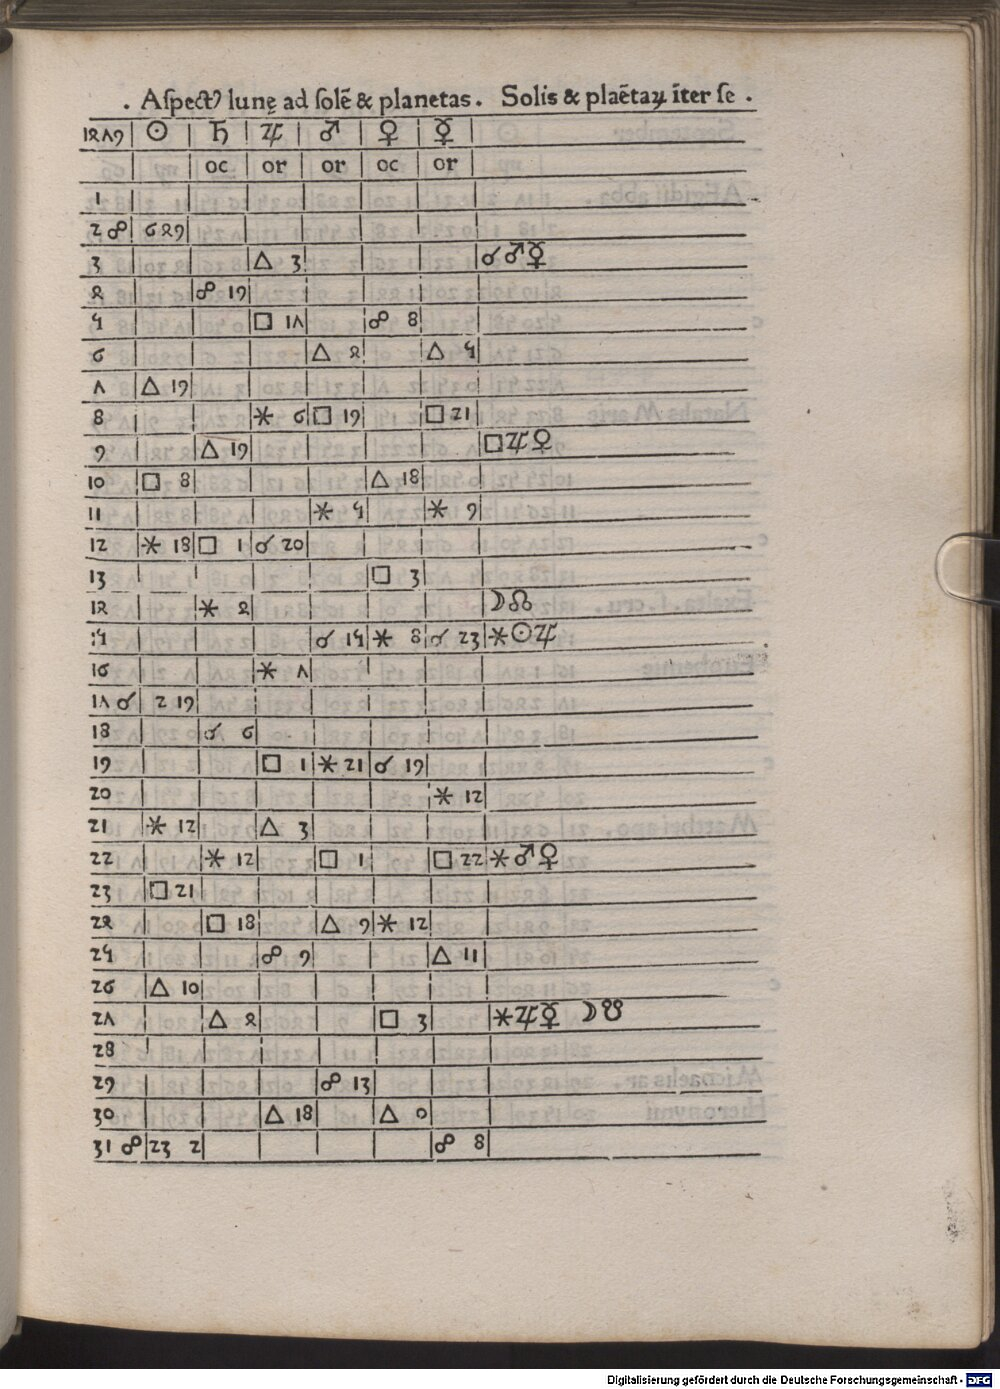 . Aſpectꝰ lunę ad ſolē & planetas . Solis & plaētaꝝ īter ſe .
1479 ☉ ♄ ♃ ♂ ♀ ☿
oc or or oc or
1
2 ☍ 6 49
3 △ 3 ☌ ♂ ☿
4 ☍ 19
5 □ 17 ☍ 8
6 △ 4 △ 5
7 △ 19
8 ⚹ 6 □ 19 □ 21
9 △ 19 □ ♃ ♀
10 □ 8 △ 18
11 ⚹ 5 ⚹ 9
12 ⚹ 18 □ 1 ☌ 20
13 □ 3
14 ⚹ 4 ☽ ☊
15 ☌ 15 ⚹ 8 ☌ 23 ⚹ ☉ ♃
16 ⚹ 7
17 ☌ 2 19
18 ☌ 6
19 □ 1 ⚹ 21 ☌ 19
20 ⚹ 12
21 ⚹ 12 △ 3
22 ⚹ 12 □ 1 □ 22 ⚹ ♂ ♀
23 □ 21
24 □ 18 △ 9 ⚹ 12
25 ☍ 9 △ 11
26 △ 10
27 △ 4 □ 3 ⚹ ♃ ☿ ☽ ☋
28
29 ☍ 13
30 △ 18 △ 0
31 ☍ 23 2 ☍ 8
Digitalisierung gefördert durch die Deutsche Forschungsgemeinschaft - DFG